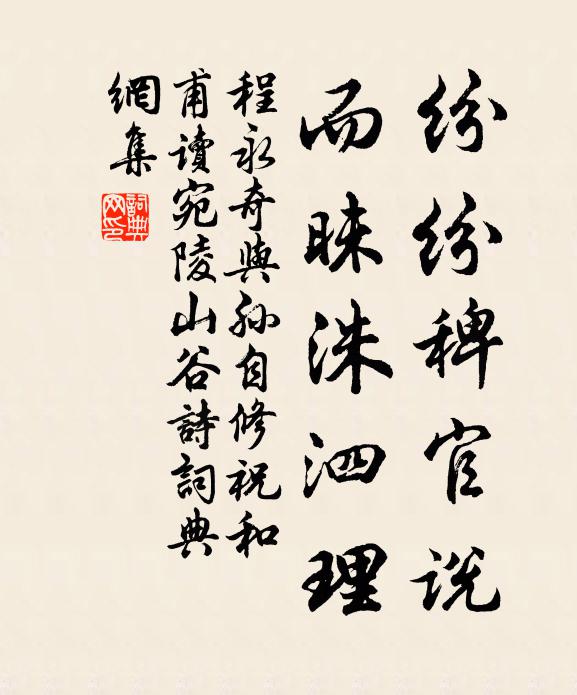 纷纷稗官说
而昧洙泗理
程永奇與孙自修祝和
甫讀宛陵山谷詩詞典
網集
詞典網印